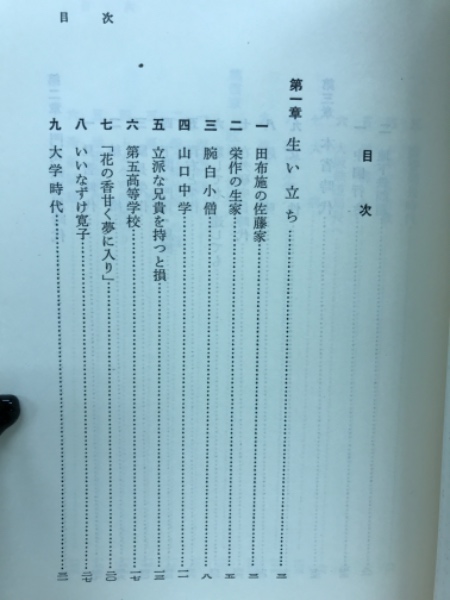 目次
目次
第一章 生い立ち……三
一 田布施の佐藤家……三
二 栄作の生家……五
三 腕白小僧……八
四 山口中学……一一
五 立派な兄貴を持つと損……一三
六 第五高等学校……一七
七 「花の香甘く夢に入り」……二〇
八 いいなずけ寛子……二七
九 大学時代